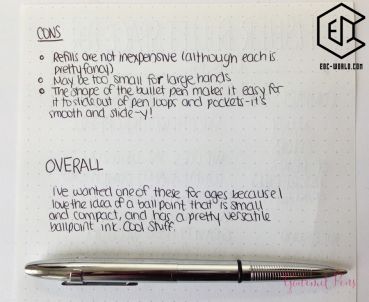 CONS
Refills are not inexpensive (although each is
pretty fancy)
May be too small for large hands
The shape of the bullet pen makes it easy for
it to slide out of pen loops and pockets-it's
smooth and slide-y!
OVERALL
I've wanted one of these for ages because I
love the idea of a ballpoint that is small
and compact, and has a pretty versatile
ballpoint ink. Cool stuff.
EDC-WORLD.COM
Pens